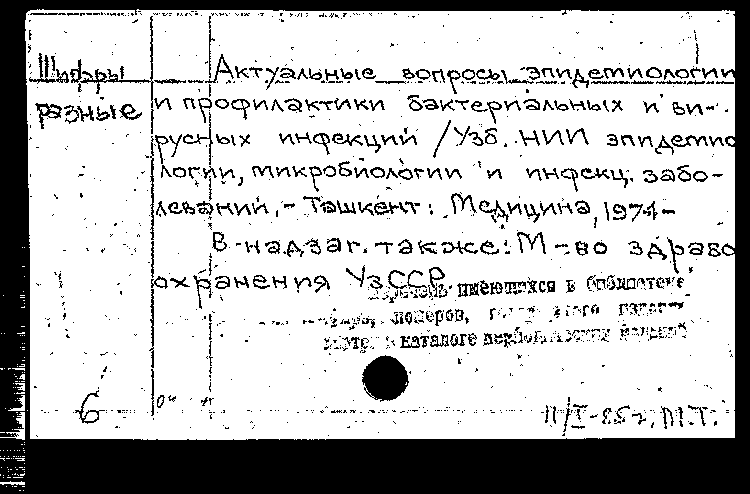 Шифры
разные
Актуальные вопросы эпидемиологии
и профилактики бактериальных и ви-
русных инфекций / Узб. НИИ эпидемио
логии, микробиологии и инфекц. забо-
леваний. - Ташкент: Медицина, 1974-
В надзаг. также: М-во здраво
охранения УзССР.
Перечень имеющихся в библиотеке
номеров, этого
в каталоге
6
11/I-85г. М.Т.